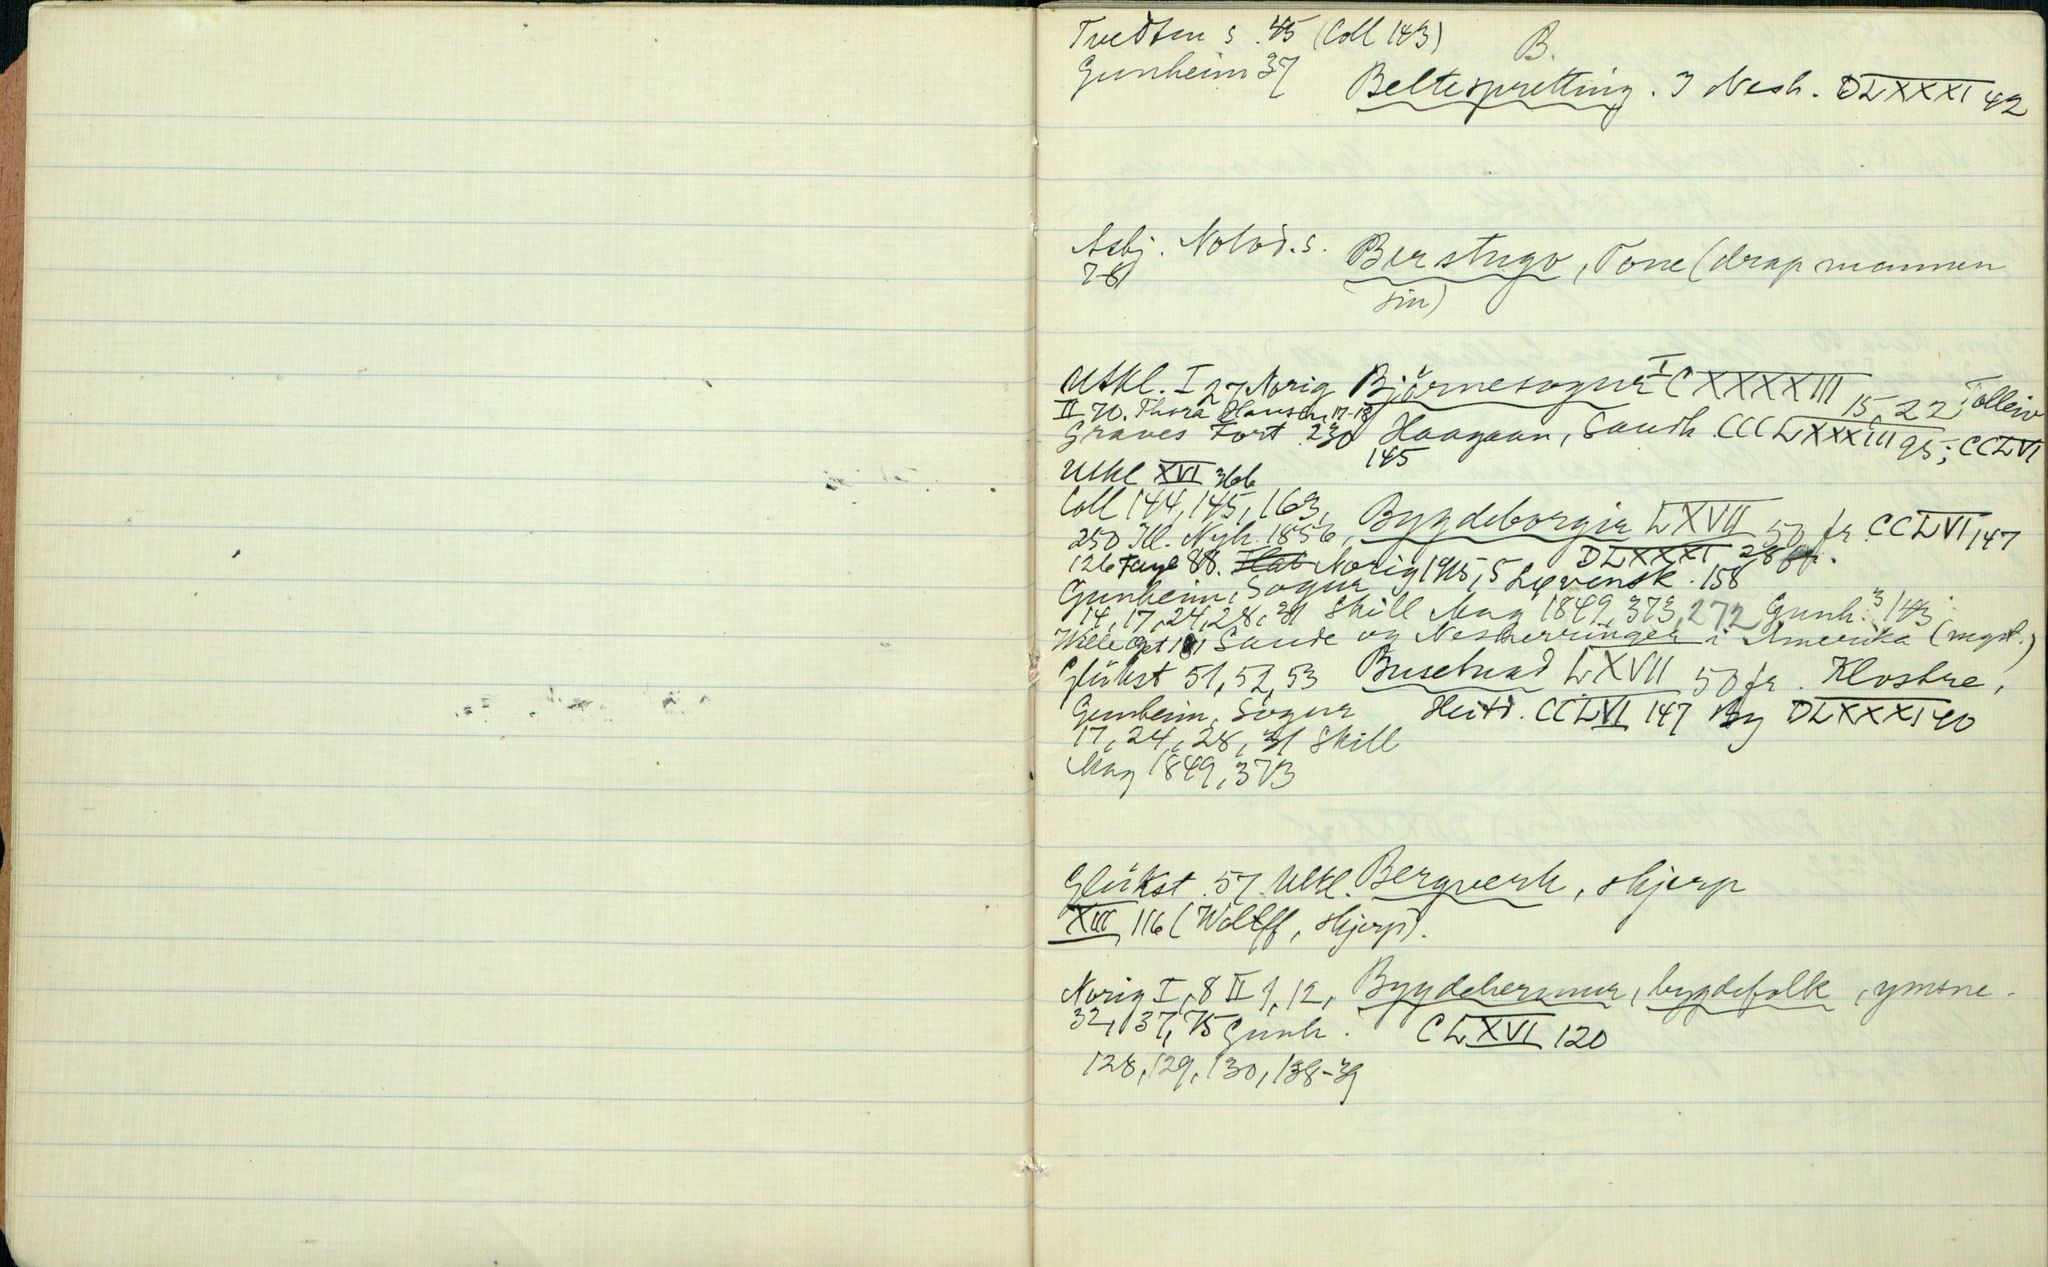 Tvedten s. 45 (Coll 143) B.
Gunheim 37 Beltespretting. I Nesh. DLXXXI 42
Asbj. Notod. s. Berstugo, Tone (drap mannen
78 sin)
Utkl. I 27 Norig Bjørnesogur I CXXXXIII 15, 22, Tolleiv
II 70. Thora Hansen 17-18
Graves Fort. 230 Haagaan, Saudh. CCCLXXXIII 95; CCLVI
145
Utkl XVI 366
Coll 144, 145, 163, Bygdeborgir LXVII 50 fr. CCLVI 147
250 Ill. Nyh. 1856, DLXXXI 28 fr.
126 Faye 88. Norig 1915, 5 Løvensk. 158
Gunheim, Sogur
14, 17, 24, 28, 31 Skill Mag 1849, 373, 272 Gunh. 3 143
Wille Saude og Nesherringer i Amerika (mgst.)
Glükst 51, 52, 53 Busetnad LXVII 50 fr. Klostre,
Gunheim, Sogur Heitd. CCLVI 147 By DLXXXI 40
17, 24, 28, 31 Skill
Mag 1849, 373
Glükst. 57. Utkl. Bergverk, skjerp
XIII 116 (Wolff, skjerp).
Norig I, 8 II 1, 12, Bygdehermur, bygdefolk, ymsne.
32, 37, 75 Gunh. CLXVI 120
128, 129, 130, 138-39